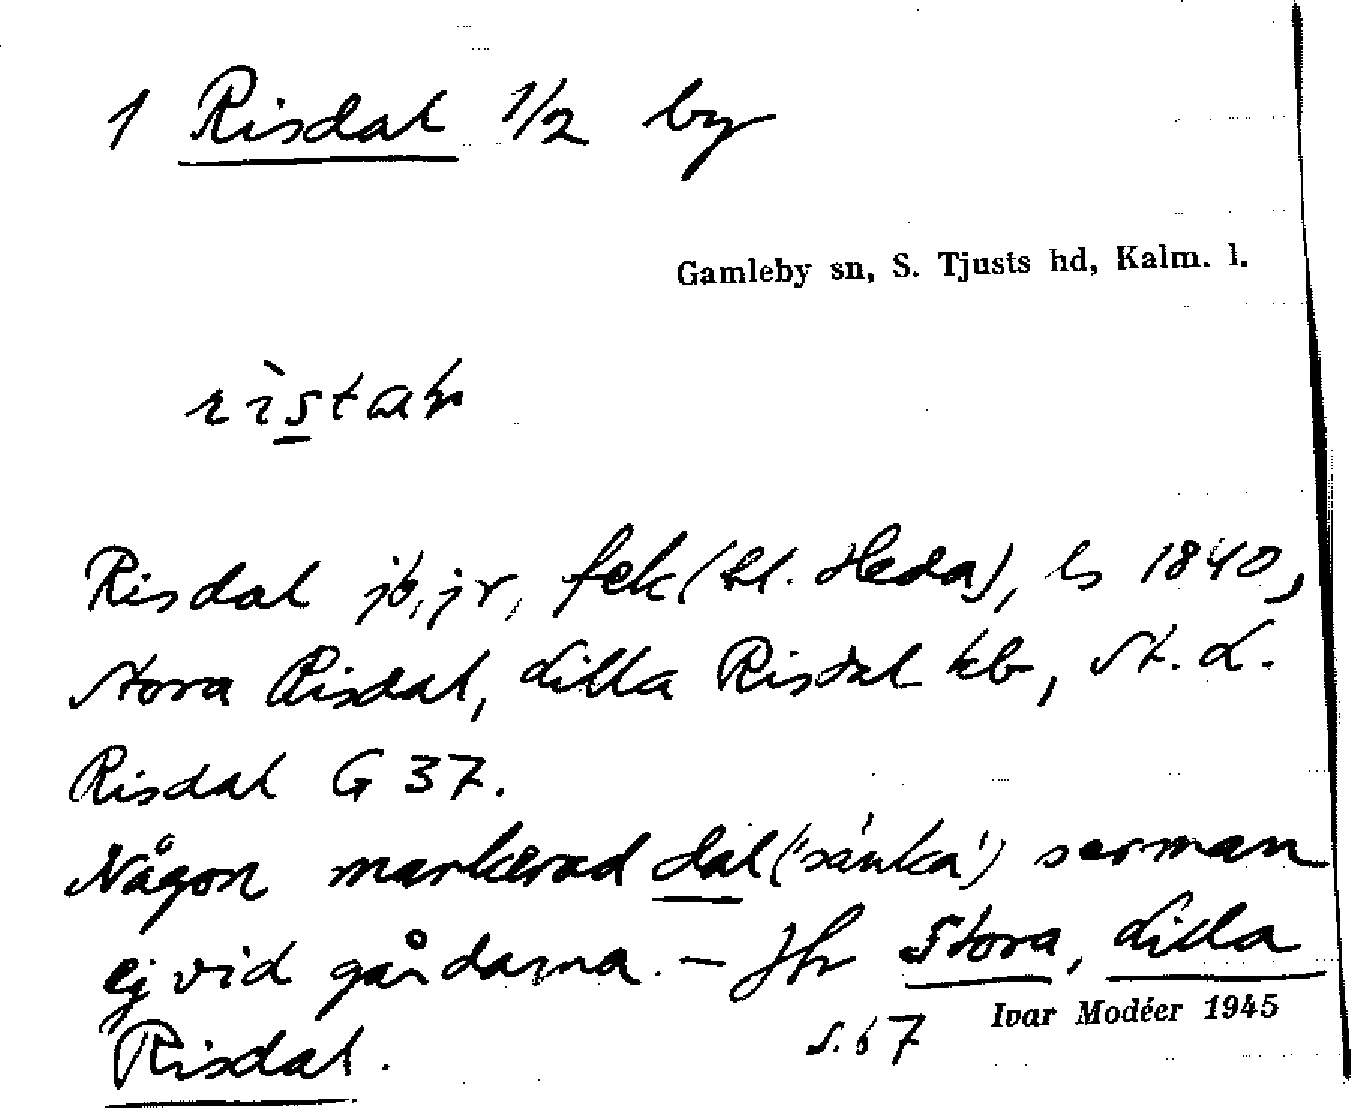 1 Risdal 1/2 by
Gamleby sn, S. Tjusts hd, Kalm. l.
Risdal jb, jr, fek (St. Heda), ls 1840,
Stora Risdal, Lilla Risdal kb, St. L.
Risdal G 37.
Någon markerad dal ('sänka') ser man
ej vid gårdarna. – Jfr Stora, Lilla
Ivar Modéer 1945
s. 67
Risdal.